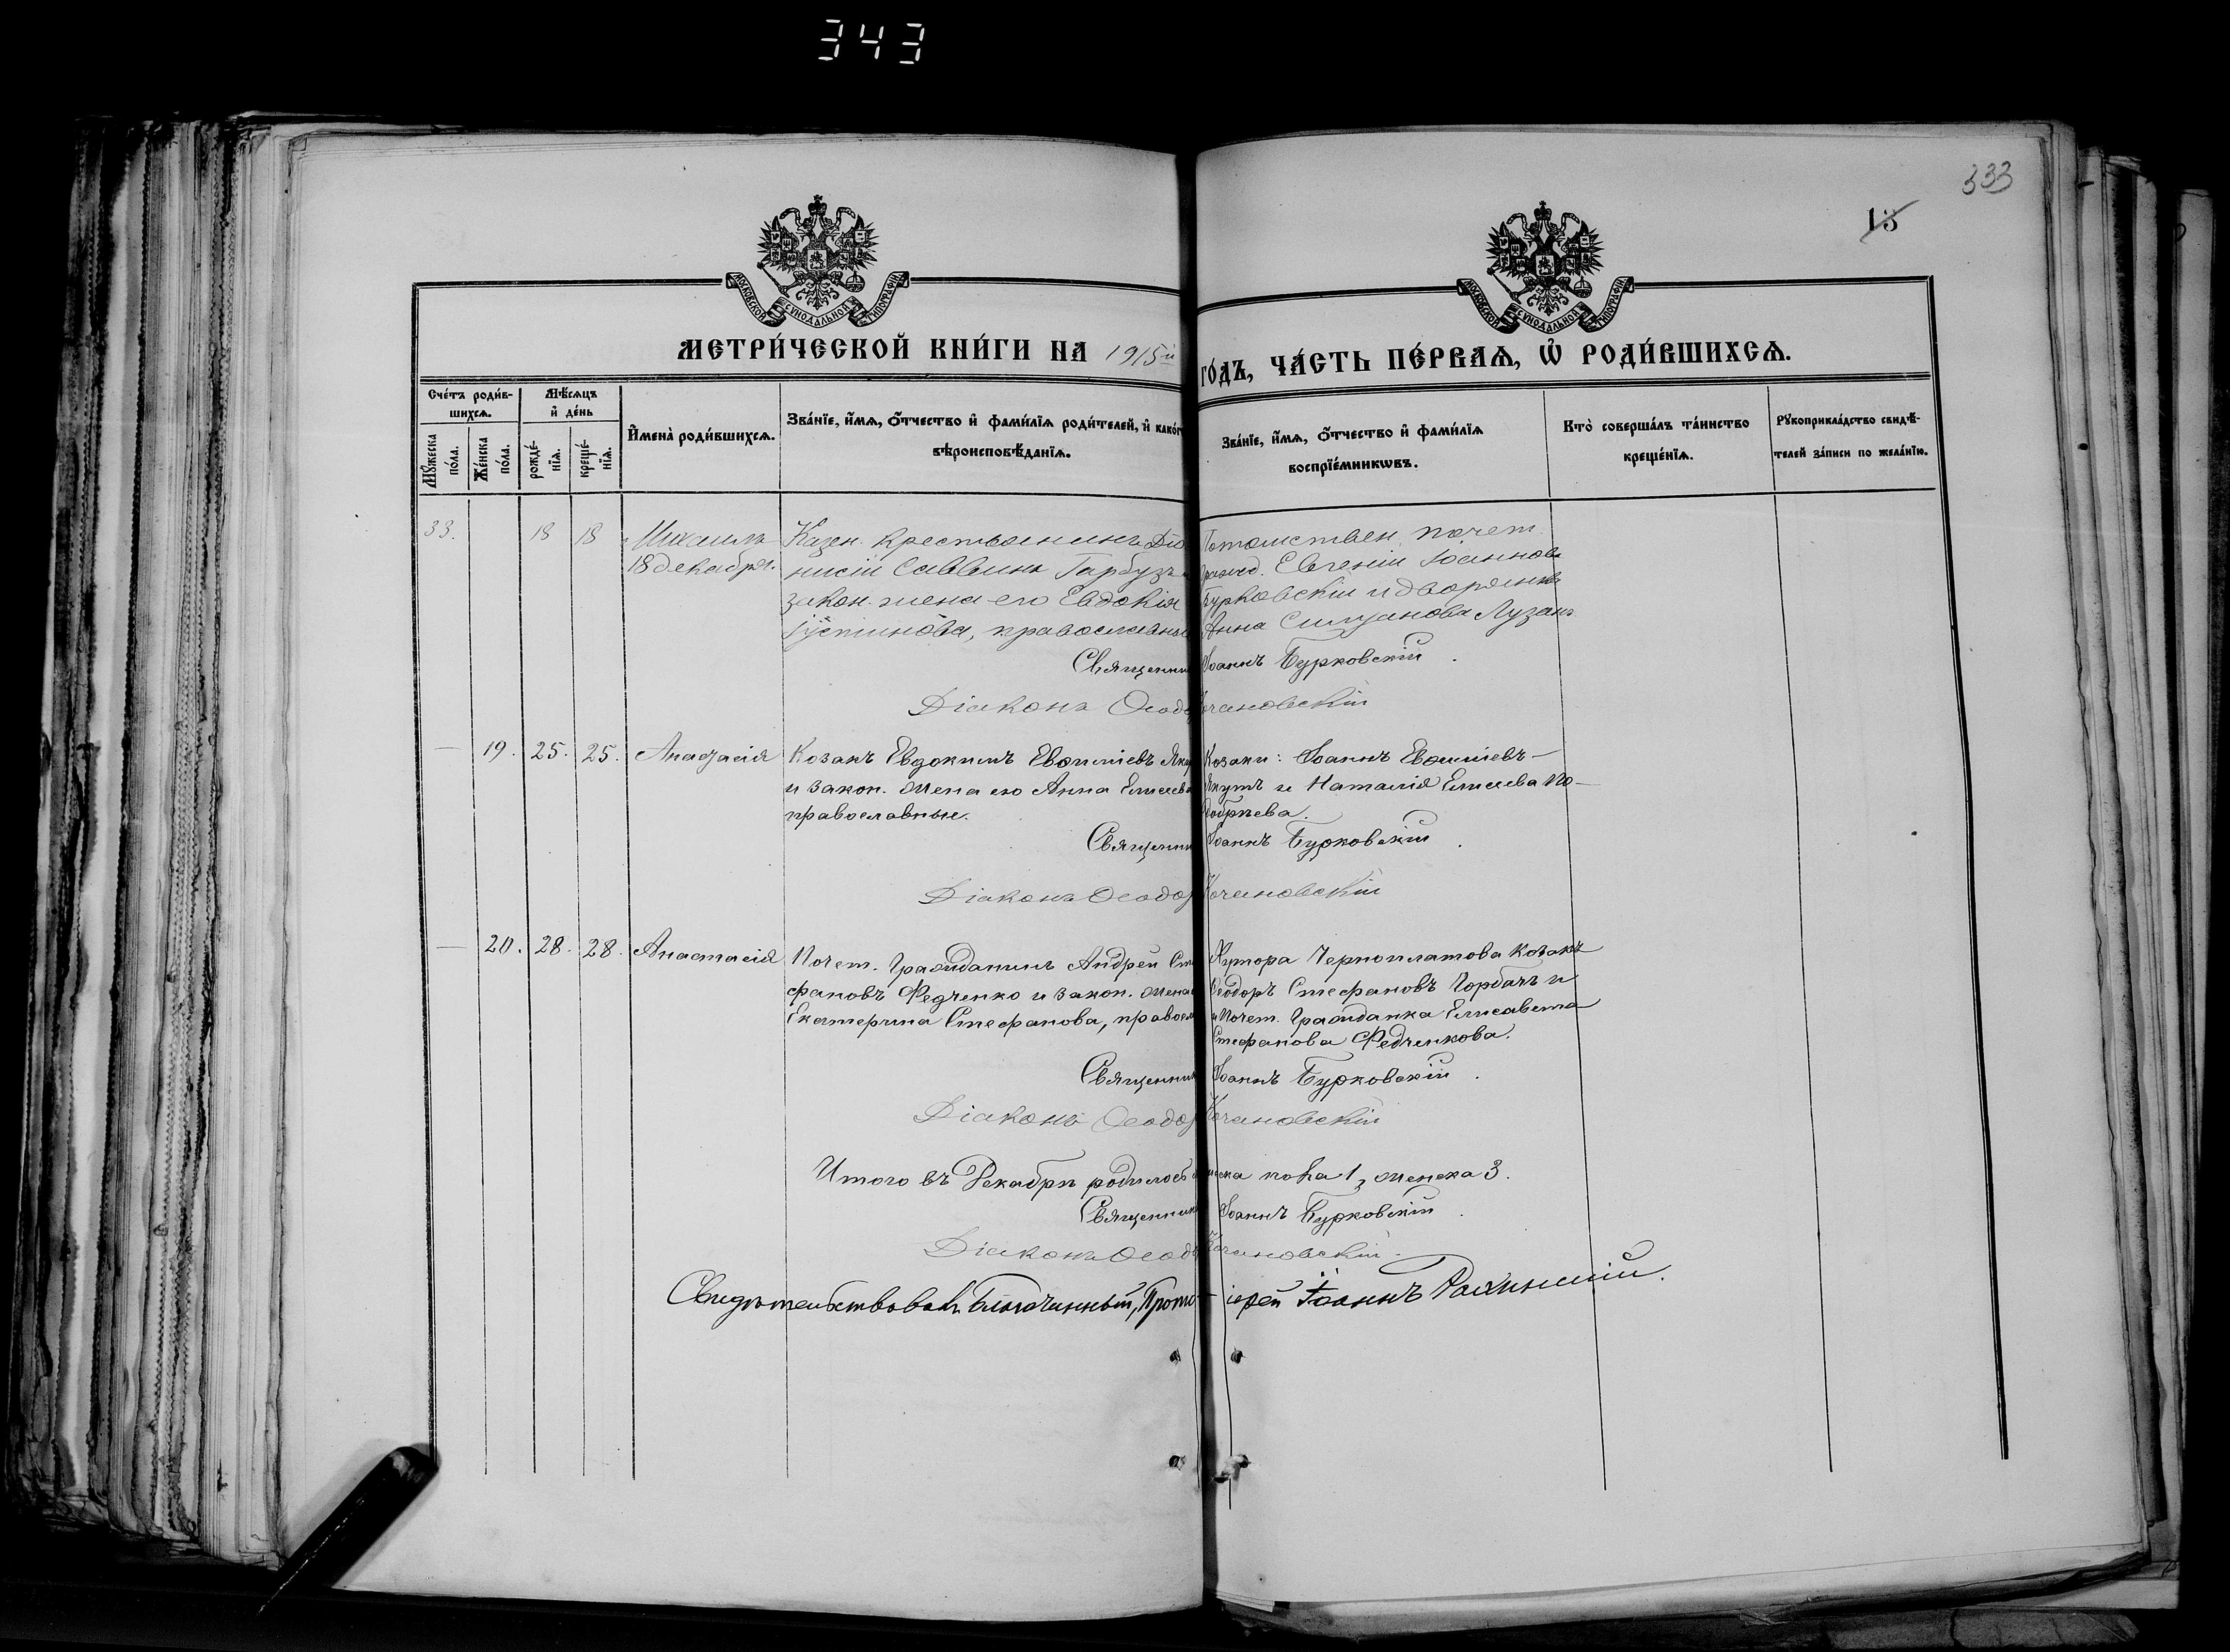 343
333
13
МОСКОВСКОЙ СѴНОДАЛЬНОЙ ТИПОГРАФІИ
МОСКОВСКОЙ СѴНОДАЛЬНОЙ ТИПОГРАФІИ
МЕТРИ́ЧЕСКОЙ КНИ́ГИ НА 1915й
ГО́ДЪ, ЧА́СТЬ ПЕ́РВАѦ, Ѽ РОДИ́ВШИХСѦ.
Сче́тъ роди́в-
шихсѧ.
Мꙋ́жеска по́ла.
Же́нска по́ла.
Мѣ́сѧцъ
и҆ де́нь
рожде́-
нїѧ.
креще́-
нїѧ.
И҆мена̀ роди́вшихсѧ.
Зва́нїе, и҆́мѧ, ѻ҆́тчество и҆ фами́лїѧ роди́телей, и҆ како́г
вѣроисповѣ́данїѧ.
Зва́нїе, и҆́мѧ, ѻ҆́тчество и҆ фами́лїѧ
воспрїе́мникѡвъ.
Кто̀ соверша́лъ та́инство
креще́нїѧ.
Рꙋкоприкла́дство свидѣ́-
телей за́писи по жела́нїю.
33. 18 18 Михаилъ Казен. крестьянинъ Діо
18 декабря. нисій Саввинъ Гарбузъ и
закон. жена его Евдокія
Іустинова, православные
Потомствен. почет.
гражд. Евгеній Іоаннов
Бурковскій и дворянка
Анна Лузанъ
Священни Іоаннъ Бурковскій.
Діаконъ Ѳеодо Кочановскій
— 19. 25. 25. Анастасія Козакъ Евдокимъ Евѳиміевъ Яку
и закон. жена его Анна Елисеева
православные.
Козаки: Іоаннъ Евѳиміевъ
Якутъ и Наталія Елисеева По-
добрѣева.
Священни Іоаннъ Бурковскій.
Діаконъ Ѳеодор Кочановскій
— 20. 28. 28. Анастасія Почет. Гражданинъ Андрей Сте
фановъ Федченко и закон. жена
Екатерина Стефанова, правосл
Хутора Черноплатова Козакъ
Ѳеодоръ Стефановъ Горбачъ и
и Почет. Гражданка Елисавета
Стефанова Федченкова.
Священник Іоаннъ Бурковскій.
Діаконъ Ѳеодор Кочановскій
Итого въ Декабрѣ родилось мужеска пола 1, женска 3.
Священник Іоаннъ Бурковскій.
Діаконъ Ѳеодо Кочановскій.
Свидѣтельствовалъ Благочинный, Прото-іерей Іоаннъ